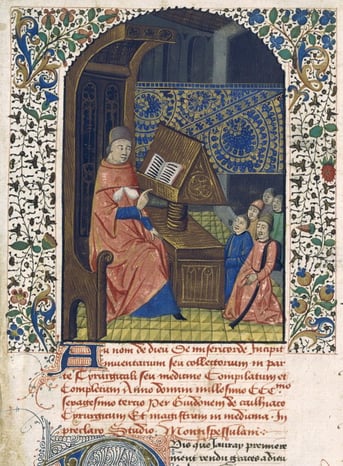 Au nom de dieu De misericorde Incipit
Inuentarium seu collectorium in par
te Cyrurgicali seu medicine Compilatum et
Completum Anno domini millesimo CCCmo
sexagesimo tercio Per Guidonem de cauliaco
Cyrurgicum Et magistrum in medicina In
preclaro Studio Montispessulani
que Jauray premiere
ment rendu graces a dieu